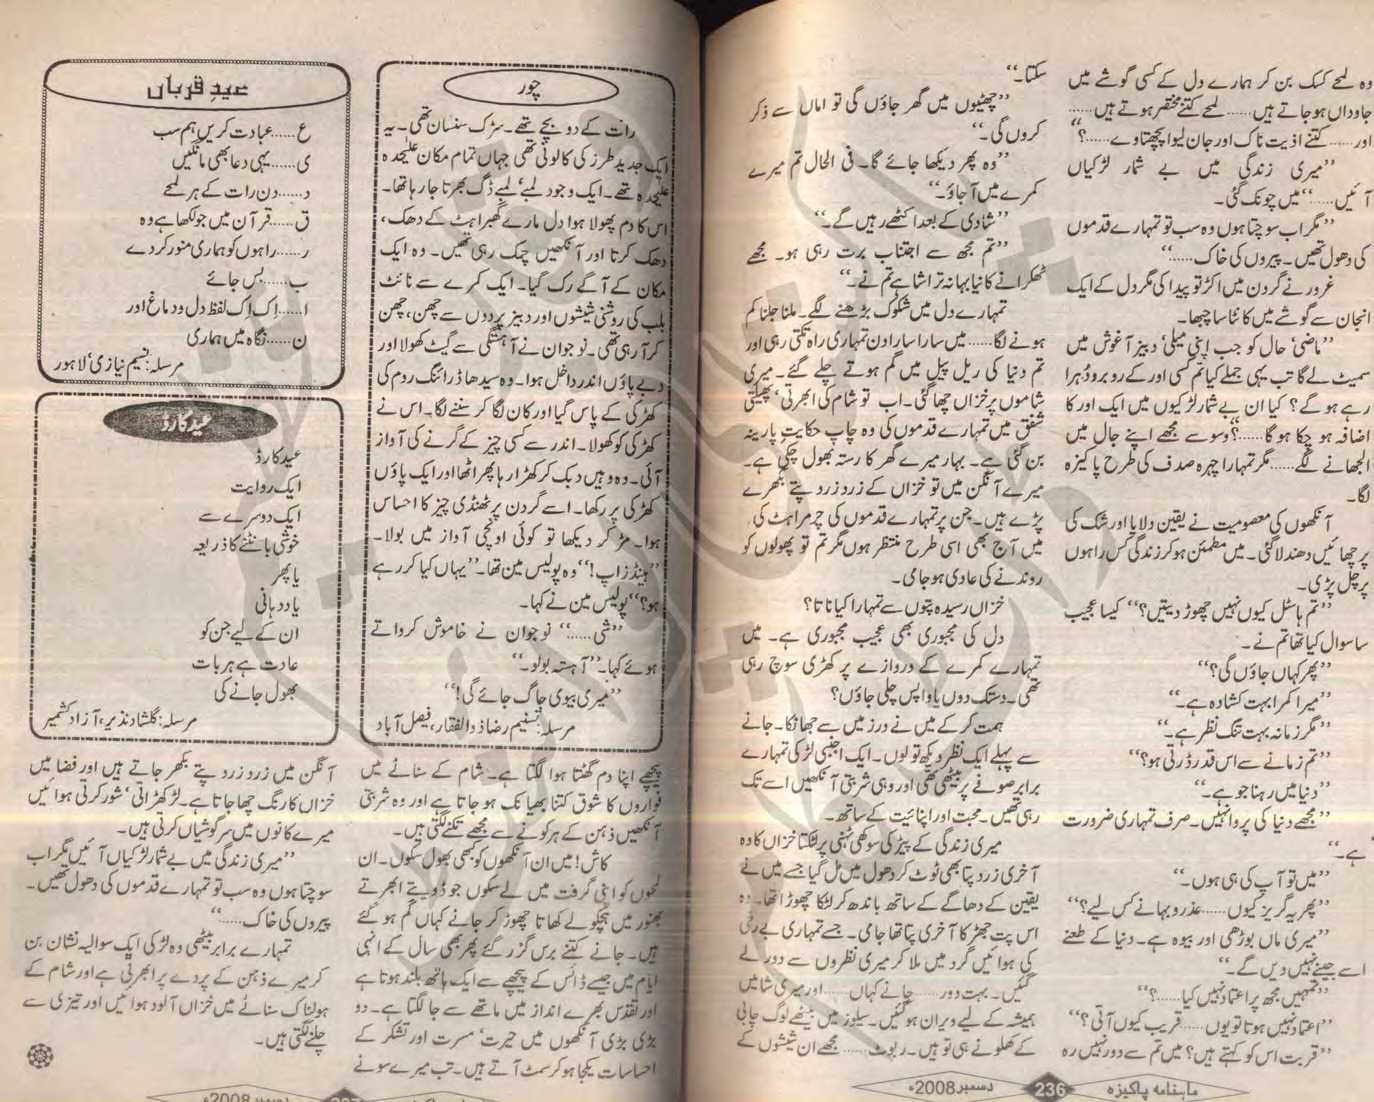 وہ لمحے کسک بن کر ہمارے دل کے کسی گوشے میں
جاوداں ہوجاتے ہیں...... لمحے کتنے مختصر ہوتے ہیں......
اور...... کتنے اذیت ناک اور جان لیوا پچھتاوے......؟‘‘
’’میری زندگی میں بے شمار لڑکیاں
آئیں......‘‘ میں چونک گئی۔
’’مگر اب سوچتا ہوں وہ سب تو تمہارے قدموں
کی دھول تھیں۔ پیروں کی خاک......‘‘
غرور نے گردن میں اکڑ تو پیدا کی مگر دل کے ایک
انجان سے گوشے میں کانٹا سا چبھا۔
’’ماضی‘ حال کو جب اپنی میلی‘ دبیز آغوش میں
سمیٹ لے گا تب یہی جملے کیا تم کسی اور کے روبرو دُہرا
رہے ہوگے؟ کیا ان بے شمار لڑکیوں میں ایک اور کا
اضافہ ہو چکا ہوگا......؟‘‘ وسوسے مجھے اپنے جال میں
الجھانے لگے...... مگر تمہارا چہرہ صدف کی طرح پاکیزہ
لگا۔
آنکھوں کی معصومیت نے یقین دلایا اور شک کی
پرچھائیں دھندلا گئی۔ میں مطمئن ہوکر زندگی کس راہوں
پر چل پڑی۔
’’تم ہاسٹل کیوں نہیں چھوڑ دیتیں؟‘‘ کیسا عجیب
سا سوال کیا تھا تم نے۔
’’پھر کہاں جاؤں گی؟‘‘
’’میرا کمرا بہت کشادہ ہے۔‘‘
’’مگر زمانہ بہت تنگ نظر ہے۔‘‘
’’تم زمانے سے اس قدر ڈرتی ہو؟‘‘
’’دنیا میں رہنا جو ہے۔‘‘
’’مجھے دنیا کی پروا نہیں۔ صرف تمہاری ضرورت
ہے۔‘‘
’’میں تو آپ کی ہی ہوں۔‘‘
’’پھر یہ گریز کیوں...... عذر و بہانے کس لیے؟‘‘
’’میری ماں بوڑھی اور بیوہ ہے۔ دنیا کے طعنے
اسے جینے نہیں دیں گے۔‘‘
’’تمہیں مجھ پر اعتماد نہیں کیا......؟‘‘
’’اعتماد نہیں ہوتا تو یوں...... قریب کیوں آتی؟‘‘
’’قربت اس کو کہتے ہیں؟ میں تم سے دور نہیں رہ
سکتا۔‘‘
’’چھٹیوں میں گھر جاؤں گی تو اماں سے ذکر
کروں گی۔‘‘
’’وہ پھر دیکھا جائے گا۔ فی الحال تم میرے
کمرے میں آجاؤ۔‘‘
’’شادی کے بعد اکٹھے رہیں گے۔‘‘
’’تم مجھ سے اجتناب برت رہی ہو۔ مجھے
ٹھکرانے کا نیا بہانہ تراشا ہے تم نے۔‘‘
تمہارے دل میں شکوک بڑھنے لگے۔ ملنا جلنا کم
ہونے لگا...... میں سارا سارا دن تمہاری راہ تکتی رہی اور
تم دنیا کی ریل پیل میں گم ہوتے چلے گئے۔ میری
شاموں پر خزاں چھا گئی۔ اب تو شام کی ابھرتی‘ پھیلتی
شفق میں تمہارے قدموں کی وہ چاپ حکایت پارینہ
بن گئی ہے۔ بہار میرے گھر کا رستہ بھول چکی ہے۔
میرے آنگن میں تو خزاں کے زرد زرد پتے بکھرے
پڑے ہیں۔ جن پر تمہارے قدموں کی چرمراہٹ کی
میں آج بھی اسی طرح منتظر ہوں مگر تم تو پھولوں کو
روندنے کی عادی ہو جامی۔
خزاں رسیدہ پتوں سے تمہارا کیا ناتا؟
دل کی مجبوری بھی عجیب مجبوری ہے۔ میں
تمہارے کمرے کے دروازے پر کھڑی سوچ رہی
تھی۔ دستک دوں یا واپس چلی جاؤں؟
ہمت کرکے میں نے درز میں سے جھانکا۔ جانے
سے پہلے ایک نظر دیکھ تو لوں۔ ایک اجنبی لڑکی تمہارے
برابر صوفے پر بیٹھی تھی اور وہی شربتی آنکھیں اسے تک
رہی تھیں۔ محبت اور اپنائیت کے ساتھ۔
میری زندگی کے پیڑ کی سوکھی ٹہنی پر لٹکتا خزاں کا وہ
آخری زرد پتا بھی ٹوٹ کر دھول میں مل گیا جسے میں نے
یقین کے دھاگے کے ساتھ باندھ کر لٹکا چھوڑا تھا۔ وہ
اس پت جھڑ کا آخری پتا تھا جامی۔ جسے تمہاری بے رخی
کی ہوائیں گرد میں ملا کر میری نظروں سے دور لے
گئیں۔ بہت دور...... جانے کہاں...... اور میری شامیں
ہمیشہ کے لیے ویران ہوگئیں۔ سیلوز میں بیٹھے لوگ چابی
کے کھلونے ہی تو ہیں۔ ربوٹ...... مجھے ان شیشوں کے
ماہنامہ پاکیزہ 236 دسمبر2008ء
چور
رات کے دو بجے تھے۔ سڑک سنسان تھی۔ یہ
ایک جدید طرز کی کالونی تھی جہاں تمام مکان علیحدہ
علیحدہ تھے۔ ایک وجود لمبے‘ لمبے ڈگ بھرتا جا رہا تھا۔
اس کا دم پھولا ہوا دل مارے گھبراہٹ کے دھک‘
دھک کرتا اور آنکھیں چمک رہی تھیں۔ وہ ایک
مکان کے آگے رک گیا۔ ایک کمرے سے نائٹ
بلب کی روشنی شیشوں اور دبیز پردوں سے چھن‘ چھن
کر آرہی تھی۔ نوجوان نے آہستگی سے گیٹ کھولا اور
دبے پاؤں اندر داخل ہوا۔ وہ سیدھا ڈرائنگ روم کی
کھڑکی کے پاس گیا اور کان لگا کر سننے لگا۔ اس نے
کھڑکی کو کھولا۔ اندر سے کسی چیز کے گرنے کی آواز
آئی۔ وہ وہیں دبک کر کھڑا رہا پھر اٹھا اور ایک پاؤں
کھڑکی پر رکھا۔ اسے گردن پر ٹھنڈی چیز کا احساس
ہوا۔ مڑ کر دیکھا تو کوئی اونچی آواز میں بولا۔
’’ہینڈز اپ!‘‘ وہ پولیس مین تھا۔ ’’یہاں کیا کر رہے
ہو؟‘‘ پولیس مین نے کہا۔
’’شی......‘‘ نوجوان نے خاموش کرواتے
ہوئے کہا۔ ’’آہستہ بولو۔‘‘
’’میری بیوی جاگ جائے گی!‘‘
مرسلہ: تسنیم رضا ذوالفقار، فیصل آباد
پیچھے اپنا دم گھٹتا ہوا لگتا ہے۔ شام کے سناٹے میں
فواروں کا شوق کتنا بھیانک ہو جاتا ہے اور وہ شربتی
آنکھیں ذہن کے ہر کونے سے مجھے تکنے لگتی ہیں۔
کاش! میں ان آنکھوں کو کبھی بھول سکوں۔ ان
لمحوں کو اپنی گرفت میں لے سکوں جو ڈوبتے ابھرتے
بھنور میں ہچکولے کھاتا چھوڑ کر جانے کہاں گم ہوگئے
ہیں۔ جانے کتنے برس گزر گئے پھر بھی سال کے انہی
ایام میں جیسے ڈائس کے پیچھے سے ایک ہاتھ بلند ہوتا ہے
اور تقدس بھرے انداز میں ماتھے سے جا لگتا ہے۔ دو
بڑی بڑی آنکھوں میں حیرت‘ مسرت اور تشکر کے
احساسات یکجا ہوکر سمٹ آتے ہیں۔ تب میرے سونے
عیدِ قرباں
ع...... عبادت کریں ہم سب
ی...... یہی دعا بھی مانگیں
د...... دن رات کے ہر لمحے
ق...... قرآن میں جو لکھا ہے وہ
ر...... راہوں کو ہماری منور کردے
ب...... بس جائے
ا...... اِک اِک لفظ دل و دماغ اور
ن...... نگاہ میں ہماری
مرسلہ: نسیم نیازی‘ لاہور
عید کارڈ
عید کارڈ
ایک روایت
ایک دوسرے سے
خوشی بانٹنے کا ذریعہ
یا پھر
یاددہانی
ان کے لیے جن کو
عادت ہے ہر بات
بھول جانے کی
مرسلہ: گلشاد نذیر، آزاد کشمیر
آنگن میں زرد زرد پتے بکھر جاتے ہیں اور فضا میں
خزاں کا رنگ چھا جاتا ہے۔ لڑکھڑاتی‘ شور کرتی ہوائیں
میرے کانوں میں سرگوشیاں کرتی ہیں۔
’’میری زندگی میں بے شمار لڑکیاں آئیں مگر اب
سوچتا ہوں وہ سب تو تمہارے قدموں کی دھول تھیں۔
پیروں کی خاک......‘‘
تمہارے برابر بیٹھی وہ لڑکی ایک سوالیہ نشان بن
کر میرے ذہن کے پردے پر ابھرتی ہے اور شام کے
ہولناک سناٹے میں خزاں آلود ہوائیں اور تیزی سے
چلنے لگتی ہیں۔
دسمبر2008ء